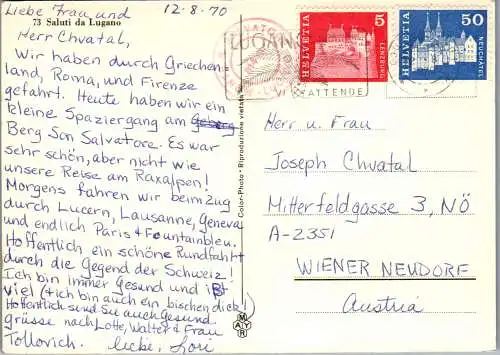 Liebe Frau und
12-8-70
73 Saluti da Lugano
Herr Chvatal,
Wir haben durch Griechen-
land, Roma, und Firenze
gefahrt. Heute haben wir ein
kleine Spaziergang am Geberg
Berg San Salvatore. Es war
sehr schön, aber nicht wie
unsere Reise am Raxalpen!
Morgens fahren wir beim Zug
durch Lucern, Lausanne, Geneva
und endlich Paris + Fountainbleu.
Hoffentlich ein schöne Rundfahrt
durch die Gegend der Schweiz!
Ich bin immer Gesund und ißt
viel (+ ich bin auch ein bischen dick!)
Hoffentlich sind Sie auch Gesund.
grüsse nach Lotte, Walter + Frau
Tollovich. Lori
Color-Photo • Riproduzione vietata
MAYR
LUGANO
VI ATTENDE
HELVETIA
5
LENZBURG
HELVETIA
50
NEUCHÂTEL
Herr u. Frau
Joseph Chvatal
Mitterfeldgasse 3, NÖ
A-2351
WIENER NEUDORF
Austria